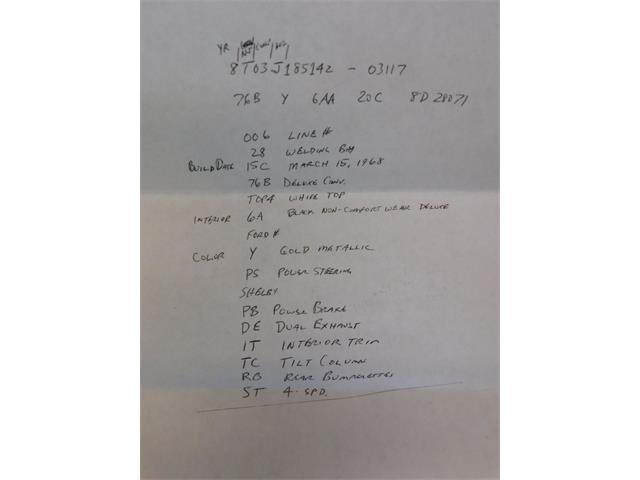 YR
8T03J185142 - 03117
76B Y 6AA 20C 8D 28071
006 LINE #
28 WELDING BAY
BUILD DATE 15C MARCH 15, 1968
76B DELUXE CONV.
TOP4 WHITE TOP
INTERIOR 6A BLACK NON-COMFORT WEAR DELUXE
FORD #
COLOR Y GOLD METALLIC
PS POWER STEERING
SHELBY
PB POWER BRAKE
DE DUAL EXHAUST
IT INTERIOR TRIM
TC TILT COLUMN
RB REAR BUMPERETTES
5T 4-SPD.